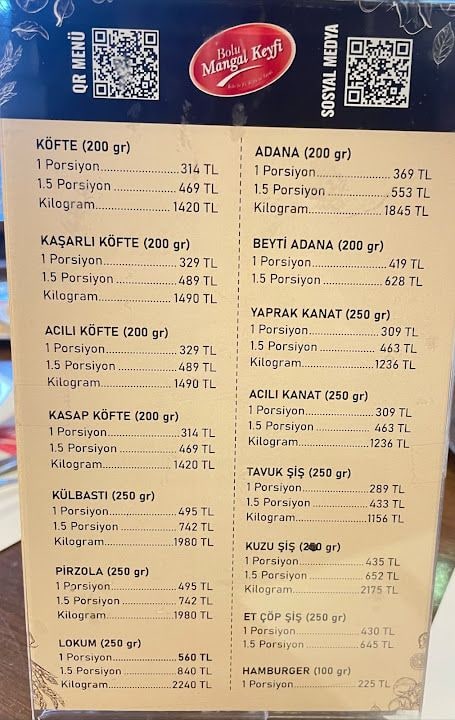 QR MENÜ
Bolu
Mangal Keyfi
SOSYAL MEDYA
KÖFTE (200 gr)
1 Porsiyon.......................314 TL
1.5 Porsiyon ................ 469 TL
Kilogram......................1420 TL
KAŞARLI KÖFTE (200 gr)
1 Porsiyon.......................329 TL
1.5 Porsiyon ................ 489 TL
Kilogram......................1490 TL
ACILI KÖFTE (200 gr)
1 Porsiyon.......................329 TL
1.5 Porsiyon ................ 489 TL
Kilogram......................1490 TL
KASAP KÖFTE (200 gr)
1 Porsiyon.......................314 TL
1.5 Porsiyon ................ 469 TL
Kilogram......................1420 TL
KÜLBASTI (250 gr)
1 Porsiyon.......................495 TL
1.5 Porsiyon ................ 742 TL
Kilogram......................1980 TL
PİRZOLA (250 gr)
1 Porsiyon.......................495 TL
1.5 Porsiyon ................ 742 TL
Kilogram......................1980 TL
LOKUM (250 gr)
1 Porsiyon.......................560 TL
1.5 Porsiyon ................ 840 TL
Kilogram......................2240 TL
ADANA (200 gr)
1 Porsiyon.......................369 TL
1.5 Porsiyon ................ 553 TL
Kilogram......................1845 TL
BEYTİ ADANA (200 gr)
1 Porsiyon.......................419 TL
1.5 Porsiyon ................ 628 TL
YAPRAK KANAT (250 gr)
1 Porsiyon.......................309 TL
1.5 Porsiyon ................ 463 TL
Kilogram......................1236 TL
ACILI KANAT (250 gr)
1 Porsiyon.......................309 TL
1.5 Porsiyon ................ 463 TL
Kilogram......................1236 TL
TAVUK ŞİŞ (250 gr)
1 Porsiyon.......................289 TL
1.5 Porsiyon ................ 433 TL
Kilogram......................1156 TL
KUZU ŞİŞ (200 gr)
1 Porsiyon.......................435 TL
1.5 Porsiyon ................ 652 TL
Kilogram......................2175 TL
ET ÇÖP ŞİŞ (250 gr)
1 Porsiyon.......................430 TL
1.5 Porsiyon ................ 645 TL
HAMBURGER (100 gr)
1 Porsiyon.......................225 TL